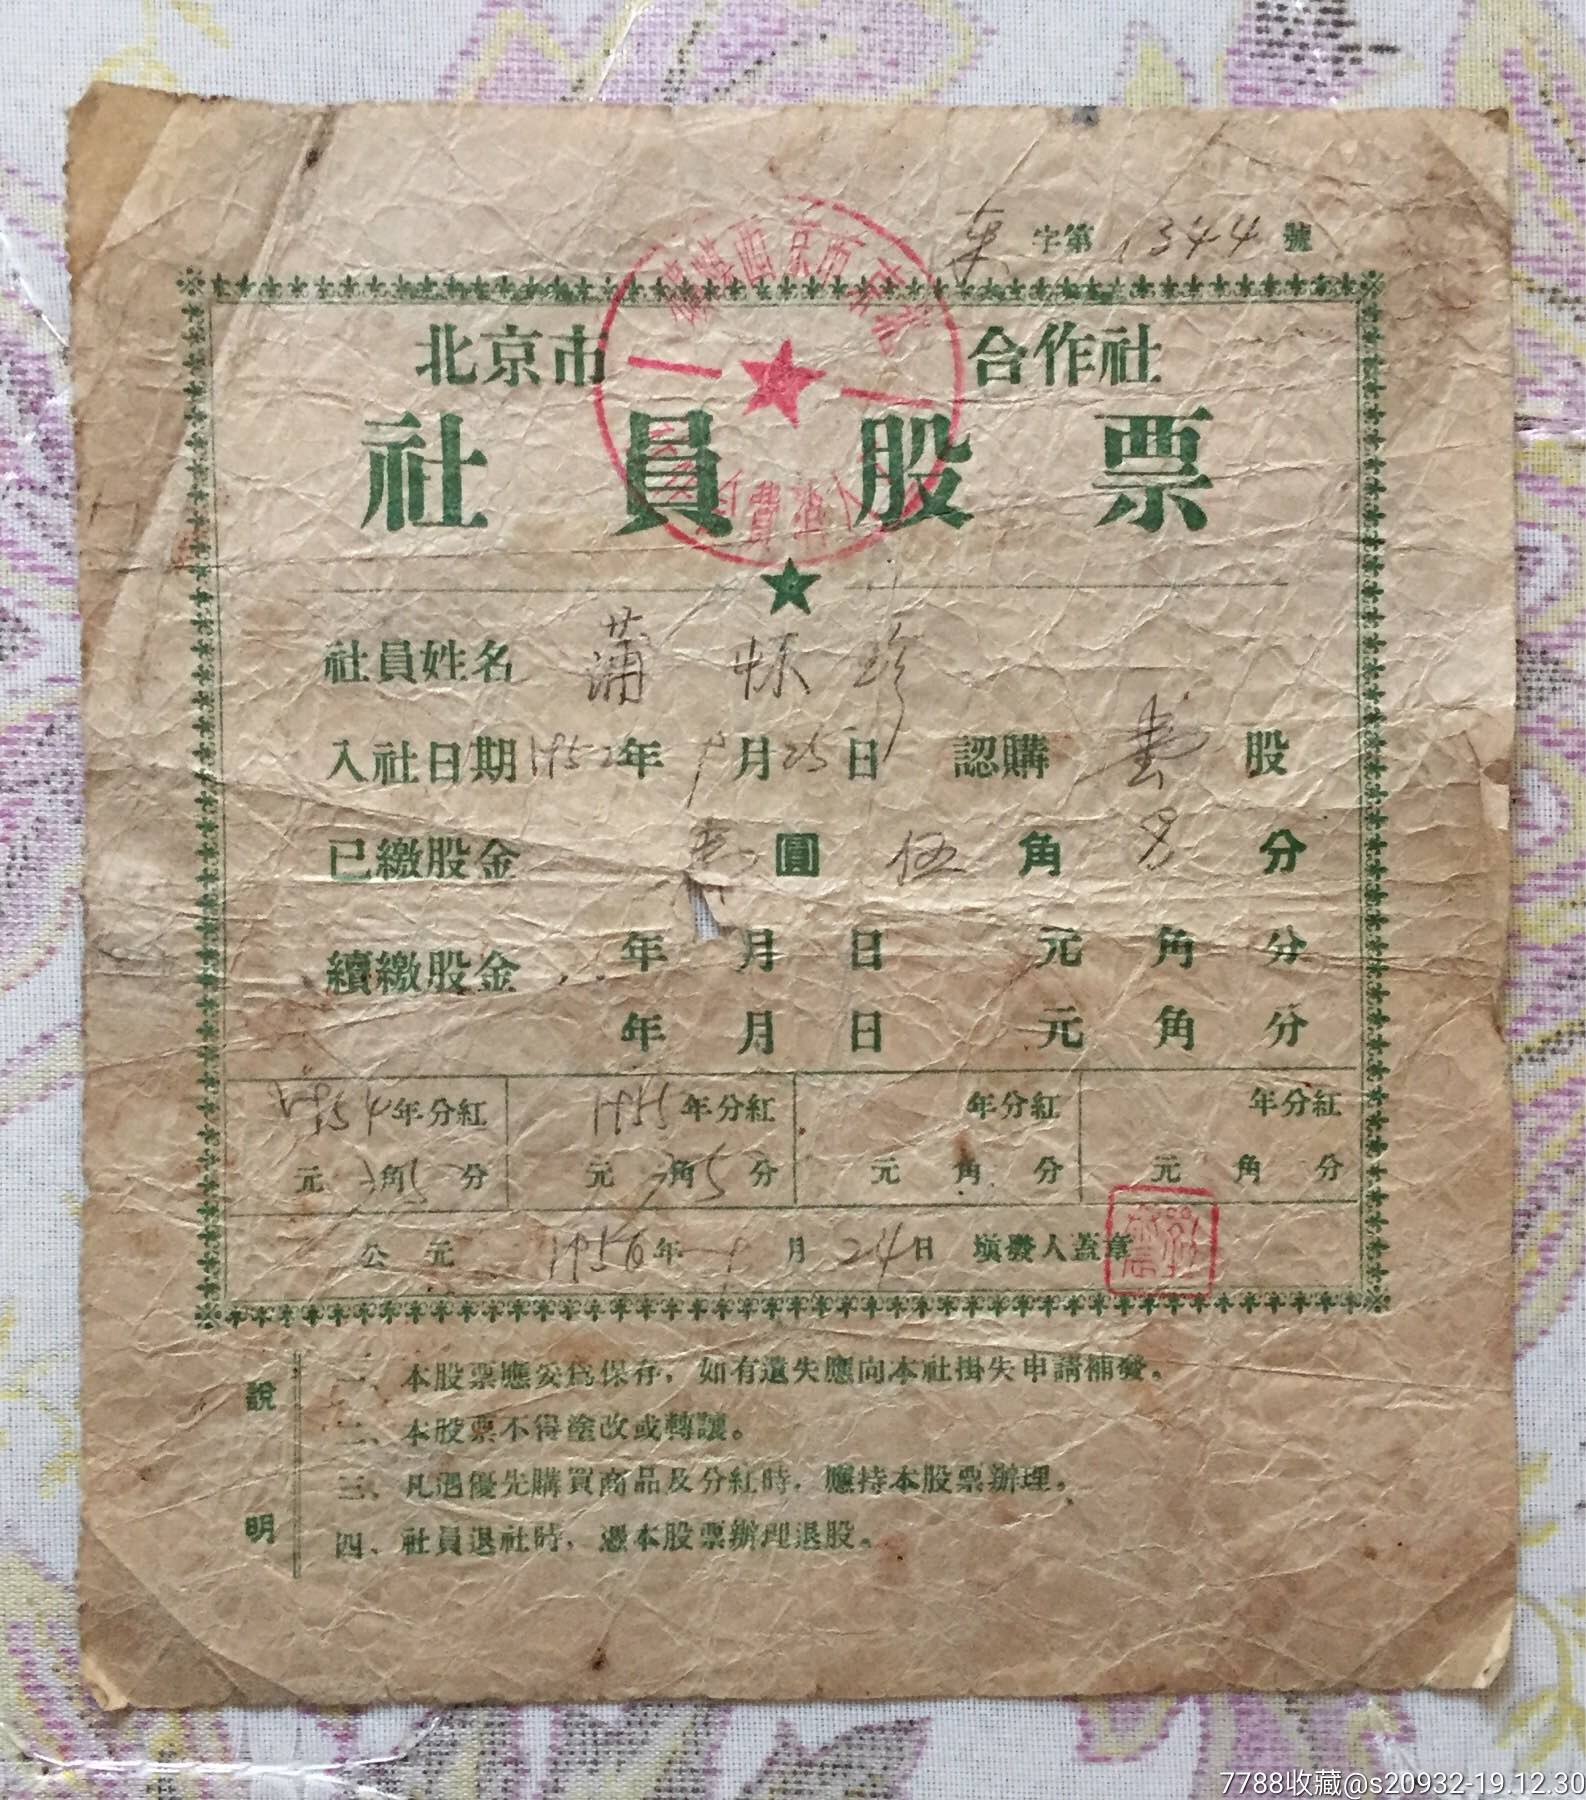 字第 1344 號
北京市 合作社
社員股票
社員姓名 蒲 珍
入社日期 1952年9月25日 認購 壹 股
已繳股金 圓 伍 角 分
續繳股金 年 月 日 元 角 分
年 月 日 元 角 分
1954年分紅 1955年分紅 年分紅 年分紅
元 角5分 元 角5分 元 角 分 元 角 分
公元 1956年 9月24日 填發人蓋章
說明
一、本股票應妥爲保存，如有遺失應向本社掛失申請補發。
二、本股票不得塗改或轉讓。
三、凡遇優先購買商品及分紅時，應持本股票辦理。
四、社員退社時，憑本股票辦理退股。
7788收藏@s20932-19.12.30